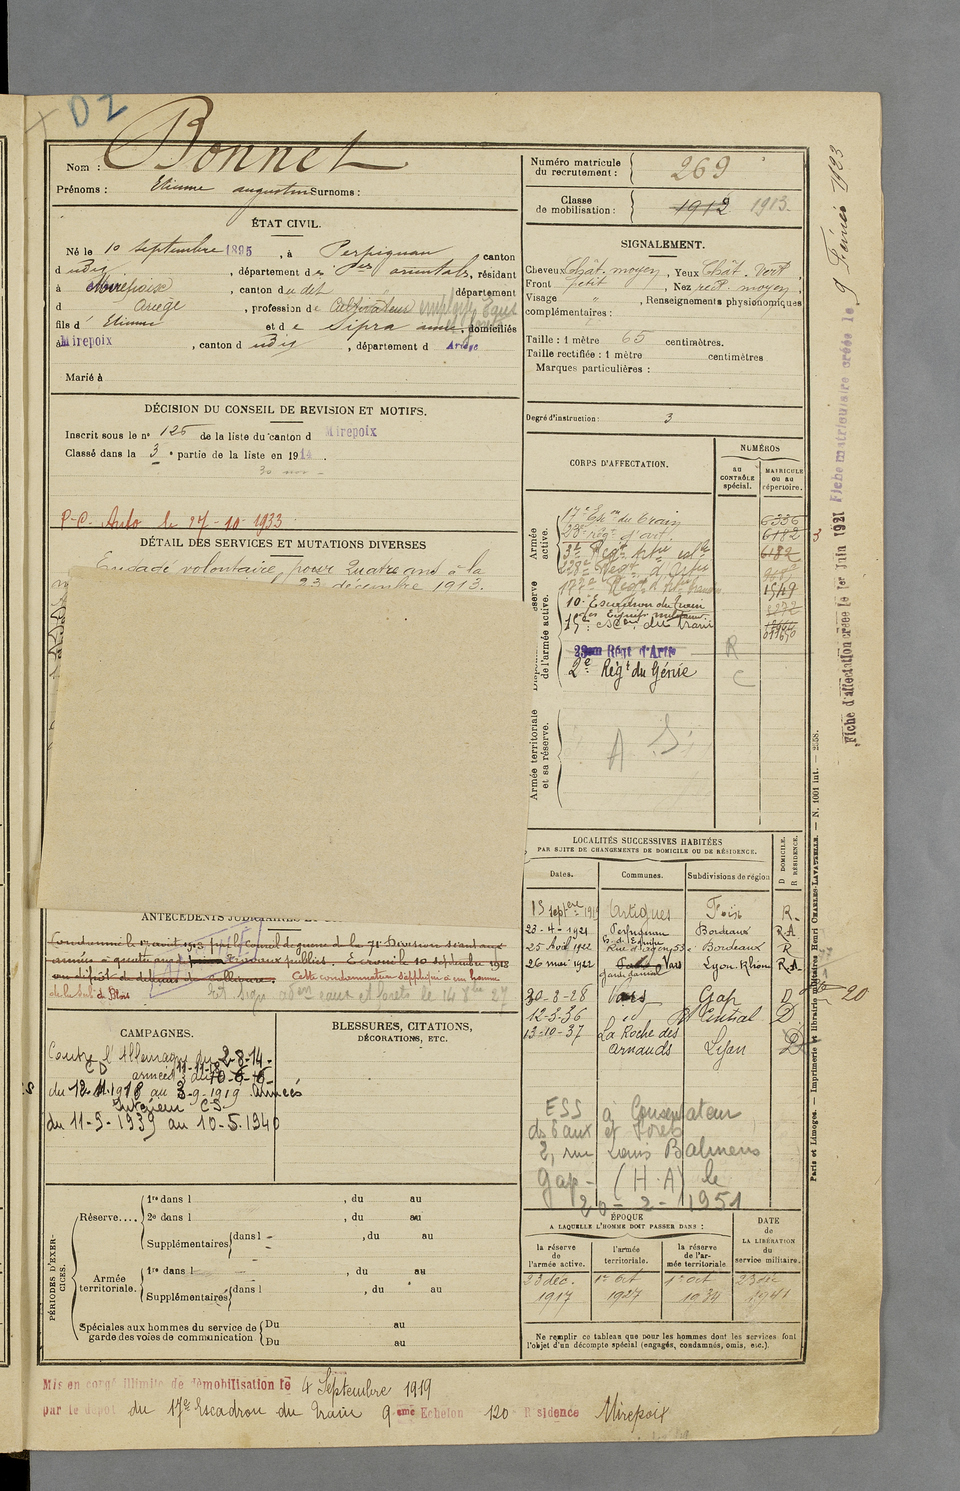 D2
Nom : Bonnet
Prénoms : Etienne augustin Surnoms :
ÉTAT CIVIL.
Né le 10 septembre 1895, à Perpignan canton
d udis, département des Pes orientales, résidant
à Mirepoix, canton du dit département
d Ariège, profession de Cultivateur employé Eaux
fils d' Etienne et de Sipra anne, domiciliés
à Mirepoix, canton d udis, département d Ariège
Marié à
DÉCISION DU CONSEIL DE REVISION ET MOTIFS.
Inscrit sous le n° 125 de la liste du canton d Mirepoix
Classé dans la 3e partie de la liste en 1914.
P.C. Auto le 27-10-1933
DÉTAIL DES SERVICES ET MUTATIONS DIVERSES
Engagé volontaire, pour quatre ans à la
23 décembre 1913.
ANTÉCÉDENTS JUDICIAIRES ET
Condamné le 17 avril 1915 par le Conseil de guerre de la 71e Division
travaux publics. Ecroué le 10 septembre 1915
au dépôt de Collioure. Cette condamnation s'applique à un homme
de la sub. de Blois
eaux et forêts le 14 8bre 27
CAMPAGNES.
Contre l'Allemagne du 2-8-14
CD armées 11-11-18 du
du 12-11-1918 au 3-9-1919 armées
Intérieur C.S.
du 11-9-1939 au 10-5-1940
BLESSURES, CITATIONS,
DÉCORATIONS, ETC.
PÉRIODES D'EXERCICES.
Réserve....
1re dans l , du au
2e dans l , du au
Supplémentaires dans l , du au
Armée territoriale.
1re dans l , du au
Supplémentaires dans l , du au
Spéciales aux hommes du service de garde des voies de communication
Du au
Du au
Mis en congé illimité de démobilisation le 4 Septembre 1919
par le dépôt du 17e Escadron du Train 9eme Echelon 120 Résidence Mirepoix
Numéro matricule du recrutement : 269
Classe de mobilisation : 1912 1913
SIGNALEMENT.
Cheveux Chât. moyen, Yeux Chât. Vert,
Front petit, Nez rect. moyen,
Visage " , Renseignements physionomiques
complémentaires :
Taille : 1 mètre 65 centimètres.
Taille rectifiée : 1 mètre centimètres
Marques particulières :
Degré d'instruction : 3
CORPS D'AFFECTATION.
NUMÉROS
au CONTRÔLE spécial.
MATRICULE ou au répertoire.
Armée active.
17e Eson du train 6336
23e rég. d'art. 6182
3e Régt 6182
238e Régt d'Artie
177e Régt 1519
10e Escadron du train 1272
des Equip. militaires
15e escon du train
28em Régt d'Artie R
2e Régt du Génie C
de l'armée active.
Armée territoriale et sa réserve.
A S
LOCALITÉS SUCCESSIVES HABITÉES
PAR SUITE DE CHANGEMENTS DE DOMICILE OU DE RÉSIDENCE.
Dates. Communes. Subdivisions de région D DOMICILE. R RÉSIDENCE.
13 septbre 1919 Artigues Foix R
23-4-1921 Perpignan Bordeaux R.A
25 Avril 1922 53 Bordeaux R
26 mai 1922 Vars Lyon. Rhône R.A
garde forestier
30-8-28 Vars Gap D
12-3-36 id Central D
13-10-37 La Roche des Arnauds Lyon D
ESS à Conservateur
des Eaux et Forêts
2, rue Louis Balmens
Gap - (H.A) le
20-2-1951
ÉPOQUE
A LAQUELLE L'HOMME DOIT PASSER DANS :
DATE de LA LIBÉRATION du service militaire.
la réserve de l'armée active.
l'armée territoriale.
la réserve de l'armée territoriale
23 déc. 1917
1er Oct 1927
1er oct 1934
23 déc 1941
Ne remplir ce tableau que pour les hommes dont les services font
l'objet d'un décompte spécial (engagés, condamnés, omis, etc.).
Paris et Limoges. — Imprimerie et librairie militaires Henri CHARLES-LAVAUZELLE. — N. 1001 int. — 2558.
Fiche d'affectation créée le 1er Juin 1921
Fiche matriculaire créée le 9 Février 1923
20